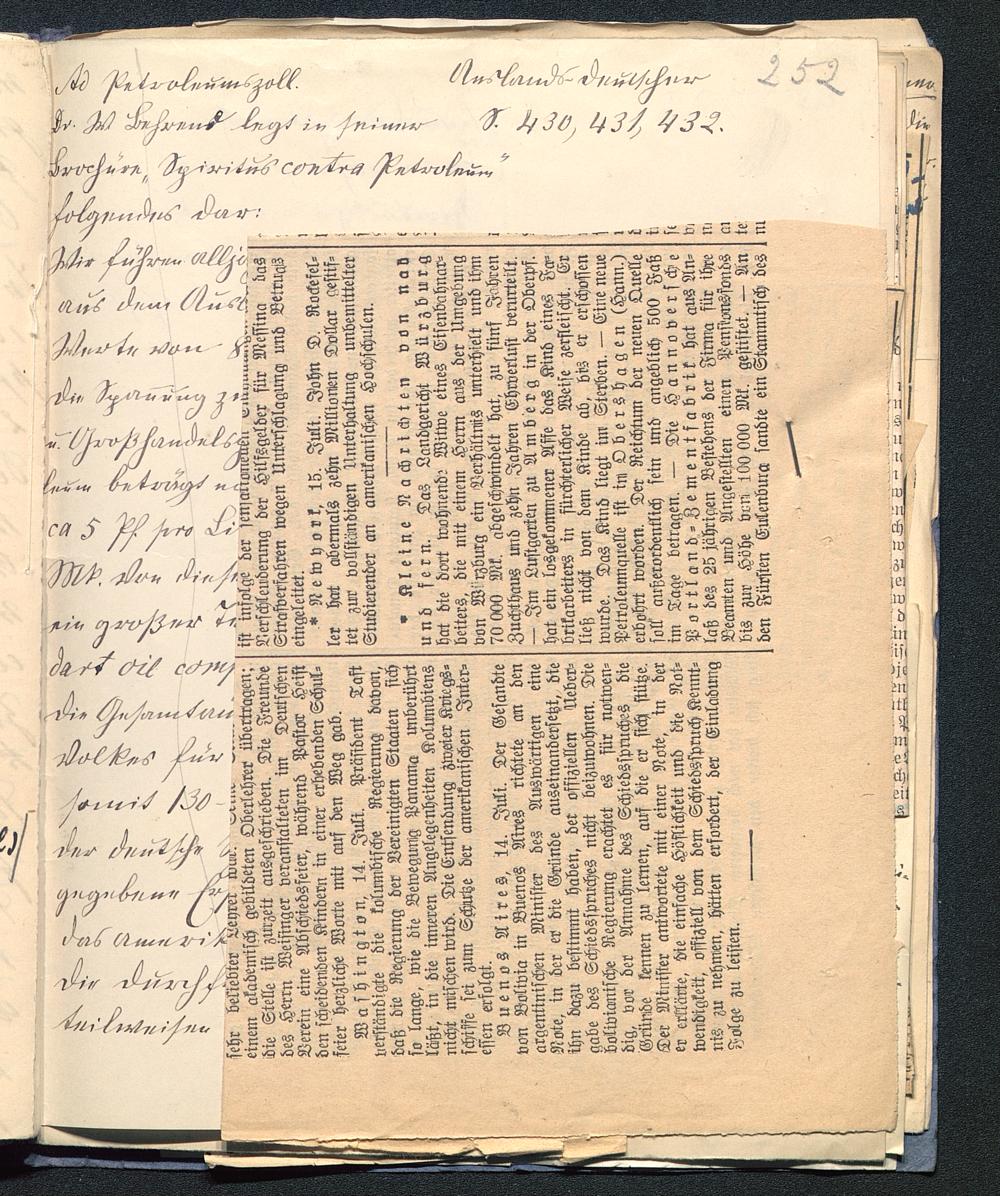 252
Ad Petroleumszoll.
Auslands-Deutscher
S. 430, 431, 432.
Dr. W Behrend legt in seiner
Brochüre „Spiritus contra Petroleum"
folgendes dar:
Wir führen alljä
aus dem Ausl
Werte von
die Spannung zw
u. Großhandels
leum beträgt
ca 5 Pf. pro Li
Mk. von diese
ein großer
dart oil comp
die Gesamtau
Volkes für
somit 130-
der deutsche
gegebene
das amerik
die durch
teilweisen
einem akademisch gebildeten Oberlehrer übertragen;
die Stelle ist zurzeit ausgeschrieben. Die Freunde
des Herrn Weisinger veranstalteten im Deutschen
Verein eine Abschiedsfeier, während Pastor Heist
den scheidenden Kindern in einer erhebenden Schul-
feier herzliche Worte mit auf den Weg gab.
Washington, 14. Juli. Präsident Taft
verständigte die kolumbische Regierung davon,
daß die Regierung der Vereinigten Staaten sich
so lange, wie die Bewegung Panama unberührt
läßt, in die inneren Angelegenheiten Kolumbiens
nicht mischen wird. Die Entsendung zweier Kriegs-
schiffe sei zum Schutze der amerikanischen Inter-
essen erfolgt.
Buenos Aires, 14. Juli. Der Gesandte
von Bolivia in Buenos Aires richtete an den
argentinischen Minister des Auswärtigen eine
Note, in der er die Gründe auseinandersetzt, die
ihn dazu bestimmt haben, der offiziellen Ueber-
gabe des Schiedsspruches nicht beizuwohnen. Die
bolivianische Regierung erachtet es für notwen-
dig, vor der Annahme des Schiedsspruches die
Gründe kennen zu lernen, auf die er sich stütze.
Der Minister antwortete mit einer Note, in der
er erklärte, die einfache Höflichkeit und die Not-
wendigkeit, offiziell von dem Schiedsspruch Kennt-
nis zu nehmen, hätten erfordert, der Einladung
Folge zu leisten.
ist infolge der sensationellen
Verschleuderung der Hilfsgelder für Messina das
Strafverfahren wegen Unterschlagung und Betrugs
eingeleitet.
* New York, 15. Juli. John D. Rockefel-
ler hat abermals zehn Millionen Dollar gestif-
tet zur vollständigen Unterhaltung unbemittelter
Studierender an amerikanischen Hochschulen.
* Kleine Nachrichten von nah
und fern. Das Landgericht Würzburg
hat die dort wohnende Witwe eines Eisenbahnar-
beiters, die mit einem Herrn aus der Umgebung
von Würzburg ein Verhältnis unterhielt und ihm
70 000 Mk. abgeschwindelt hat, zu fünf Jahren
Zuchthaus und zehn Jahren Ehrverlust verurteilt.
— Im Lustgarten zu Amberg in der Oberpf.
hat ein losgekommener Affe das Kind eines Fa-
brikarbeiters in fürchterlicher Weise zerfleischt. Er
ließ nicht von dem Kinde ab, bis er erschossen
wurde. Das Kind liegt im Sterben. — Eine neue
Petroleumquelle ist in Obershagen (Hann.)
erbohrt worden. Der Reichtum der neuen Quelle
soll außerordentlich sein und angeblich 500 Faß
im Tage betragen. — Die Hannoversche
Portland-Zementfabrik hat aus An-
laß des 25 jährigen Bestehens der Firma für ihre
Beamten und Angestellten einen Pensionsfonds
bis zur Höhe von 100 000 Mk. gestiftet. — An
den Fürsten Eulenburg sandte ein Stammtisch des